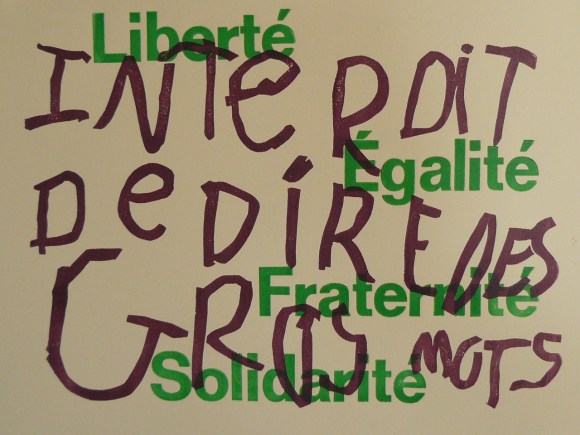 Liberté
INTeRDiT
Égalité
De DiRE DES
Fraternité
GROS MOTS
Solidarité